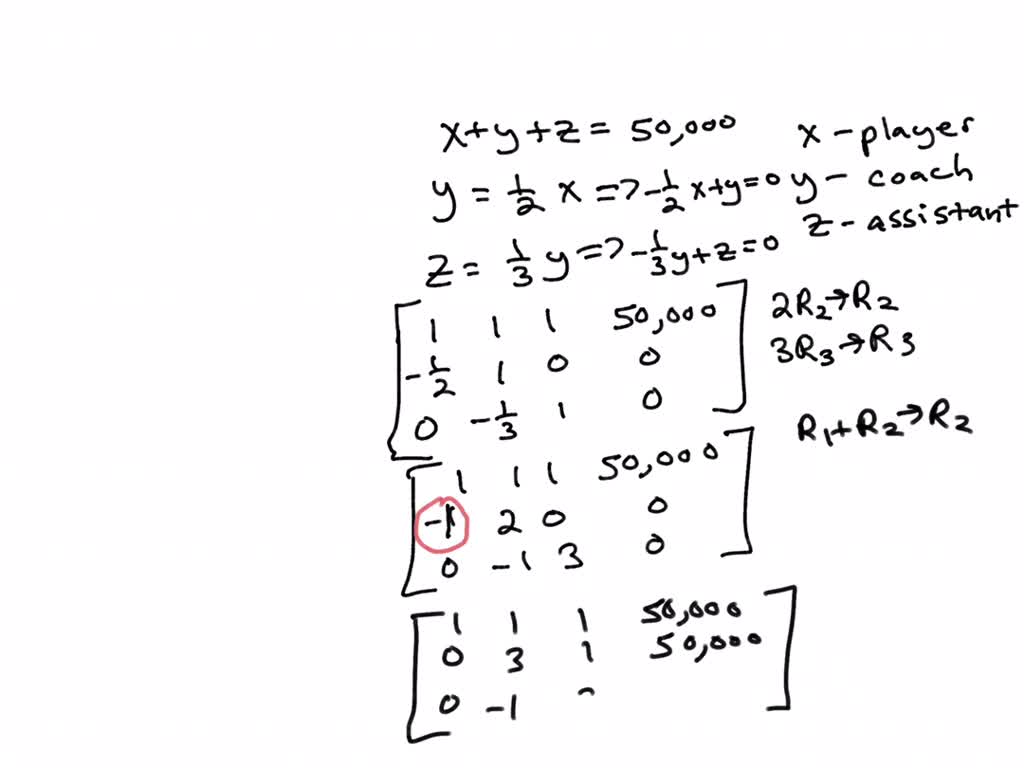 x+y+z = 50,000 x - player
y = 1/2 x => -1/2 x+y=0 y - coach
z = 1/3 y => -1/3 y+z=0 z - assistant
1 1 1 50,000 2R₂→R₂
-1/2 1 0 0 3R₃→R3
0 -1/3 1 0
R₁+R₂→R₂
1 1 1 50,000
-1 2 0 0
0 -1 3 0
1 1 1 50,000
0 3 1 50,000
0 -1